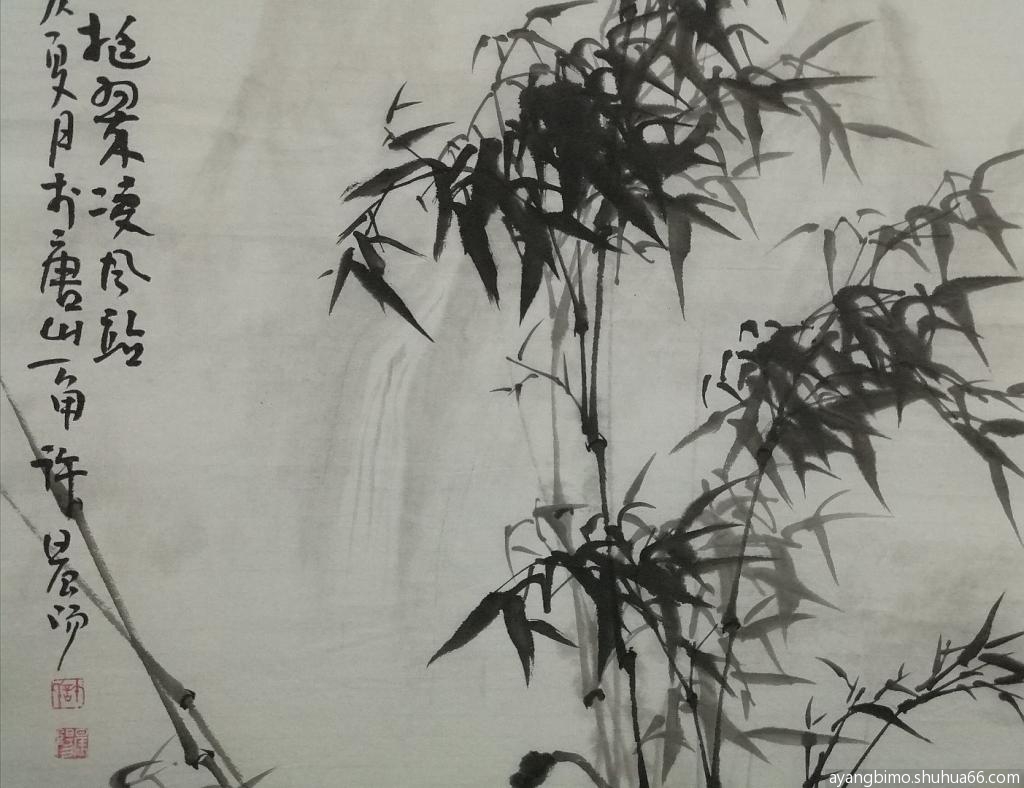 挺翠凌风
夏月於唐山一角 许晨阳
许
ayangbimo.shuhua66.com